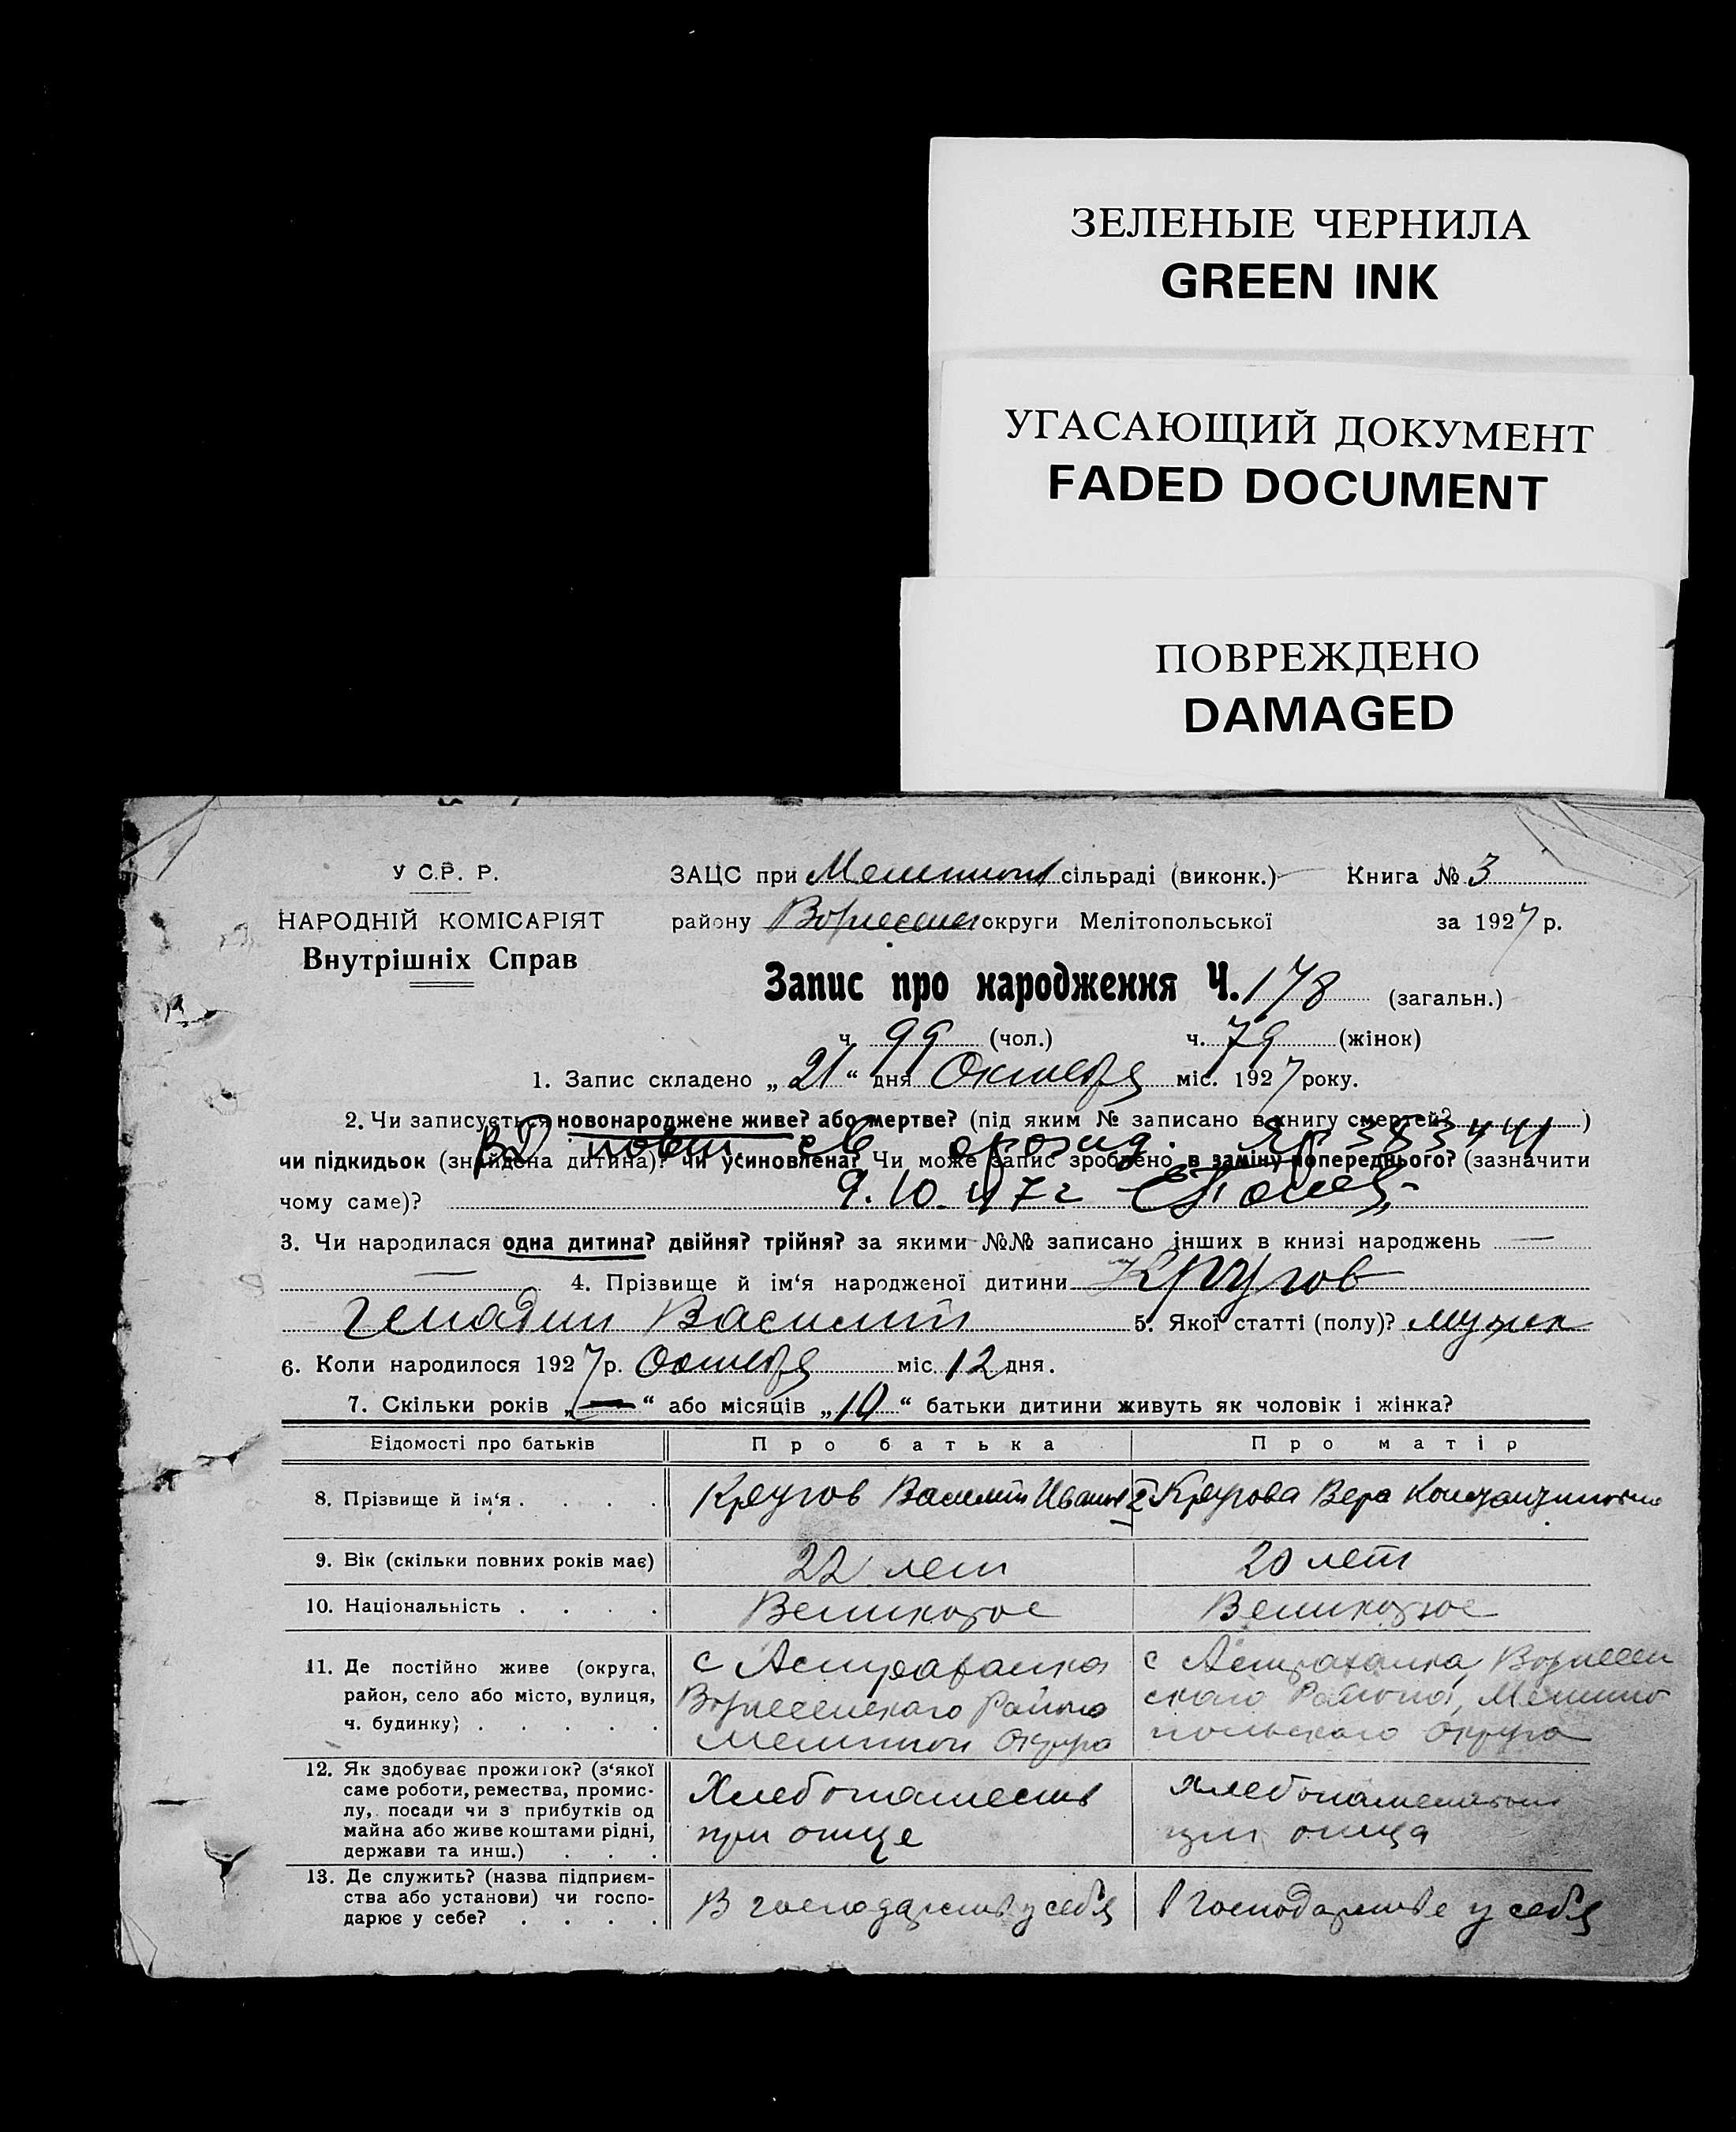 ЗЕЛЕНЫЕ ЧЕРНИЛА
GREEN INK
УГАСАЮЩИЙ ДОКУМЕНТ
FADED DOCUMENT
ПОВРЕЖДЕНО
DAMAGED
У С.Р. Р.
НАРОДНІЙ КОМІСАРІЯТ
Внутрішніх Справ
ЗАЦС при сільраді (виконк.) Книга № 3
району округи Мелітопольської за 1927 р.
Запис про народження Ч. 178 (загальн.)
ч. 99 (чол.) ч. 79 (жінок)
1. Запис складено „ 21 “ дня Октября міс. 1927 року.
2. Чи записується новонароджене живе? або мертве? (під яким № записано в книгу смертей? )
ВД повт. св о рожд.
чи підкидьок (знайдена дитина)? чи усиновлена? Чи може запис зроблено в заміну попереднього? (зазначити
чому саме)? 9. 10. 47 г
3. Чи народилася одна дитина? двійня? трійня? за якими №№ записано інших в книзі народжень —
— 4. Прізвище й ім‘я народженої дитини Кругов
Генадии Василий 5. Якої статті (полу)? мужск
6. Коли народилося 1927 р. Октября міс. 12 дня.
7. Скільки років „ — “ або місяців „ 10 “ батьки дитини живуть як чоловік і жінка?
Відомості про батьків Про батька Про матір
8. Прізвище й ім‘я . . . . Кругов Василий Иванов Кругова Вера Константиновна
9. Вік (скільки повних років має) 22 лет 20 лет
10. Національність . . . . Великорос Великорос
11. Де постійно живе (округа,
район, село або місто, вулиця,
ч. будинку) . . . . .
с Астраханка
Вознесенскаго Района
Мелитоп Округа
с Астраханка, Вознесен
скаго Района, Мелито
польскаго Округа
12. Як здобуває прожиток? (з‘якої
саме роботи, ремества, промис-
лу, посади чи з прибутків од
майна або живе коштами рідні,
держави та инш.) . . .
Хлебопашеств
при отце
при отца
13. Де служить? (назва підприєм-
ства або установи) чи госпо-
дарює у себе? . . . .
В господарств у себя
В господарстве у себя